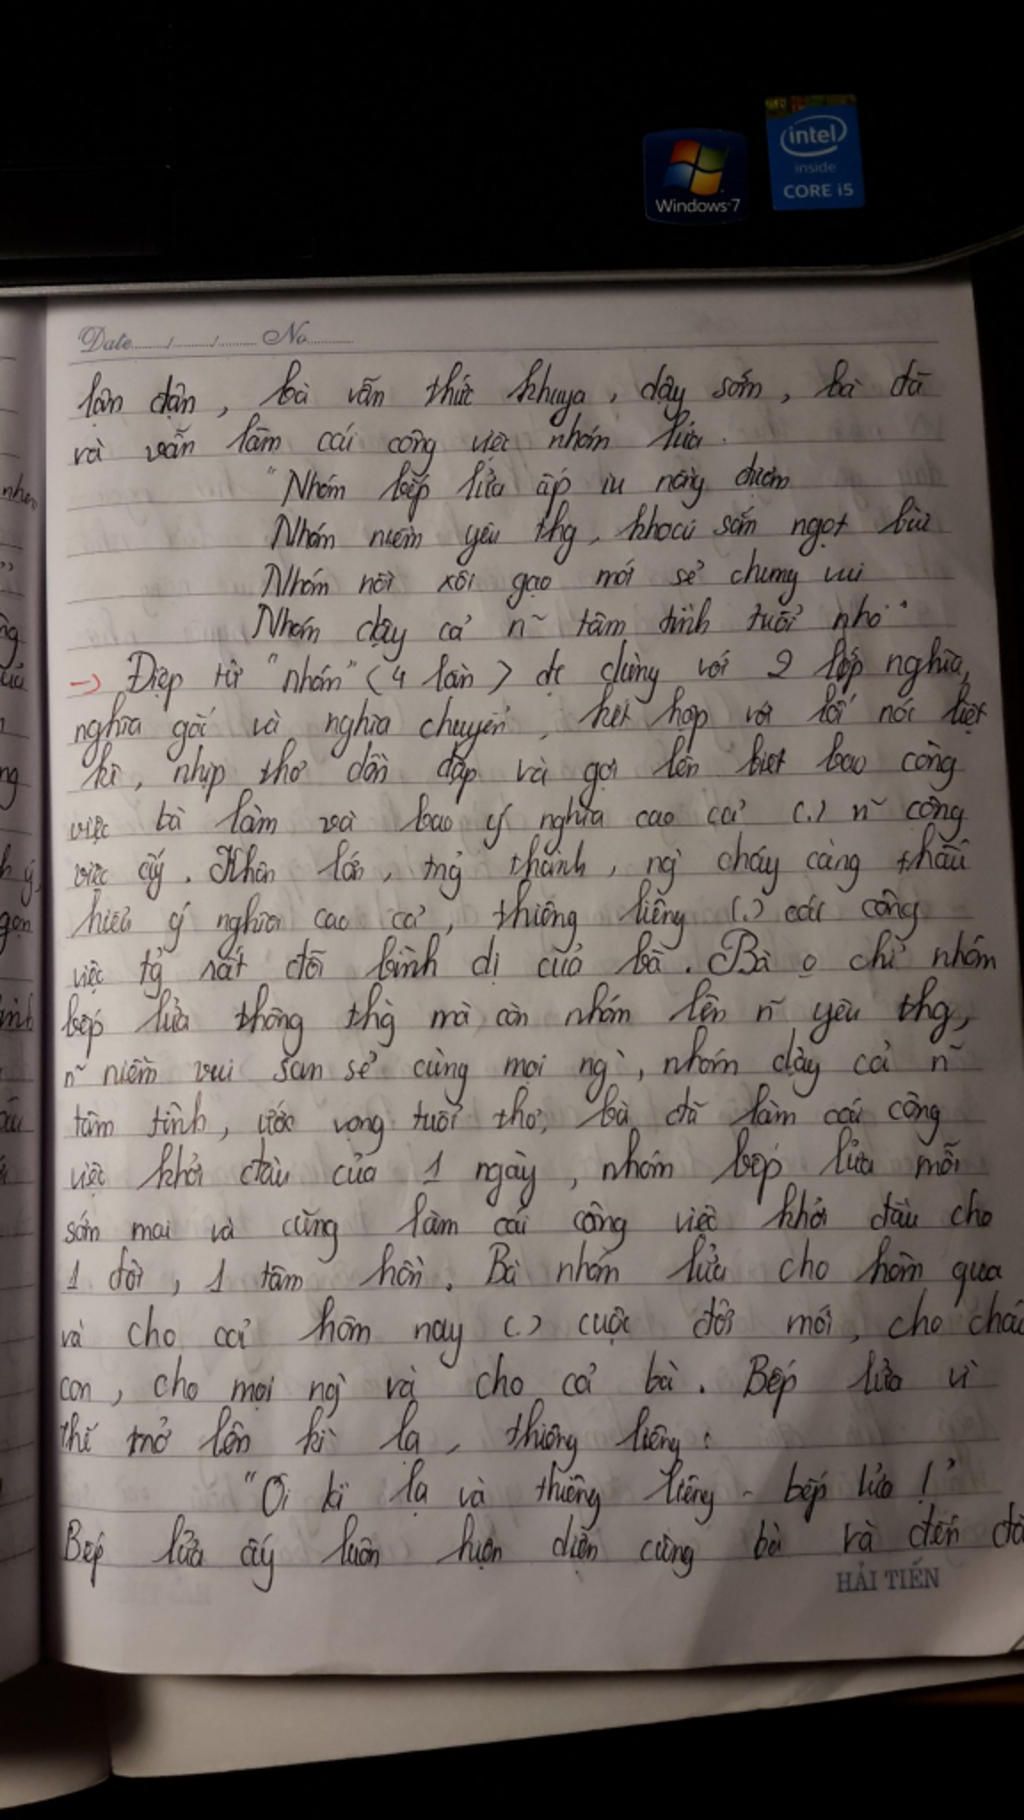 intel
inside
CORE i5
Windows 7
Date....../....../...... No..........
lận đận, bà vẫn thức khuya, dậy sớm, bà đã
và vẫn làm cái công việc nhóm lửa.
"Nhóm bếp lửa ấp iu nồng đượm
Nhóm niềm yêu thg, khoai sắn ngọt bùi
Nhóm nồi xôi gạo mới sẻ chung vui
Nhóm dậy cả n~ tâm tình tuổi nhỏ"
-> Điệp từ "nhóm" (4 lần) đc dùng với 2 lớp nghĩa,
nghĩa gốc và nghĩa chuyển, kết hợp với lối nói liệt
kê, nhịp thơ dồn dập và gợi lên biết bao công
việc bà làm và bao ý nghĩa cao cả (.) n~ công
việc ấy. Khôn lớn, trg thành, ng cháy càng thấu
hiểu ý nghĩa cao cả, thiêng liêng (.) các công
việc tg rất đỗi bình dị của bà. Bà o chỉ nhóm
bếp lửa thông thg mà còn nhóm lên n~ yêu thg,
n~ niềm vui san sẻ cùng mọi ng, nhóm dậy cả n~
tâm tình, ước vọng tuổi thơ, bà đã làm cái công
việc khởi đầu của 1 ngày, nhóm bếp lửa mỗi
sớm mai và cũng làm cái công việc khởi đầu cho
1 đời, 1 tâm hồn. Bà nhóm lửa cho hôm qua
và cho cả hôm nay (.) cuộc đời mới, cho cháu
con, cho mọi ng và cho cả bà. Bếp lửa vì
thế trở lên kì lạ, thiêng liêng:
"Ôi kì lạ và thiêng liêng - bếp lửa!"
Bếp lửa ấy luôn hiện diện cùng bà và đến
HẢI TIẾN